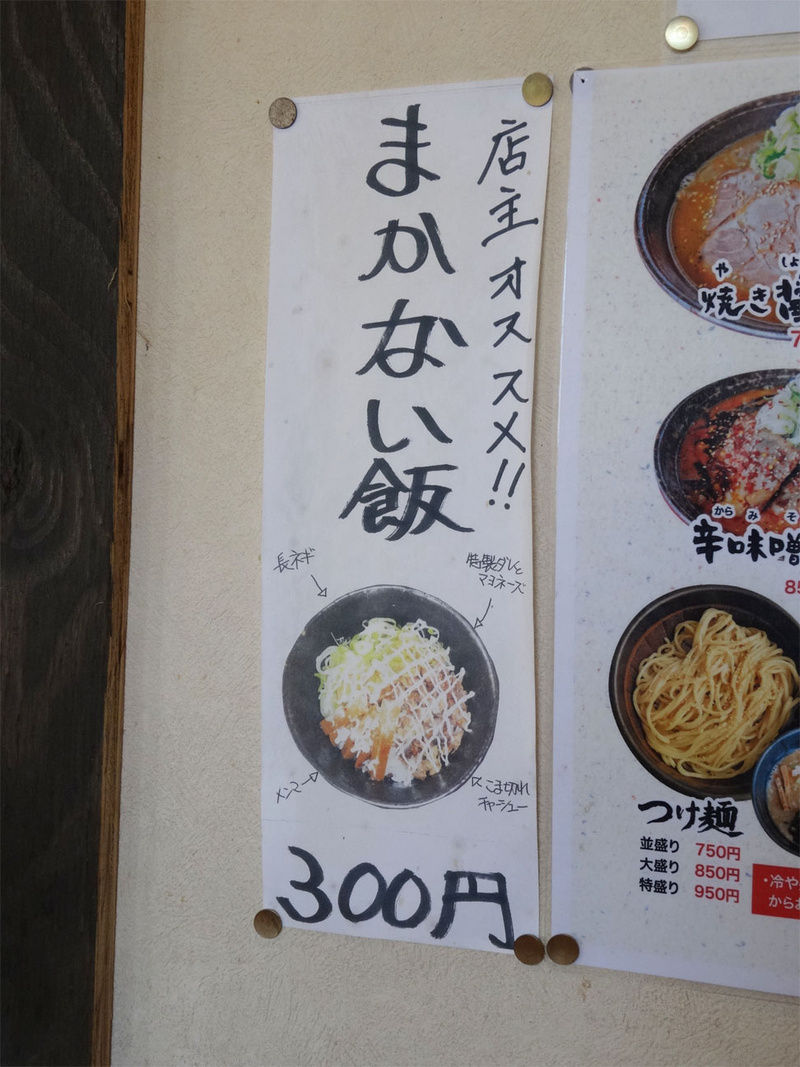 店主オススメ!!
まかない飯
長ネギ
特製ダレと
マヨネーズ
メンマ
こま切れ
チャーシュー
300円
や
しょ
焼き醤
7
から み そ
辛味噌
85
つけ麺
並盛り 750円
大盛り 850円
特盛り 950円
・冷や
からお